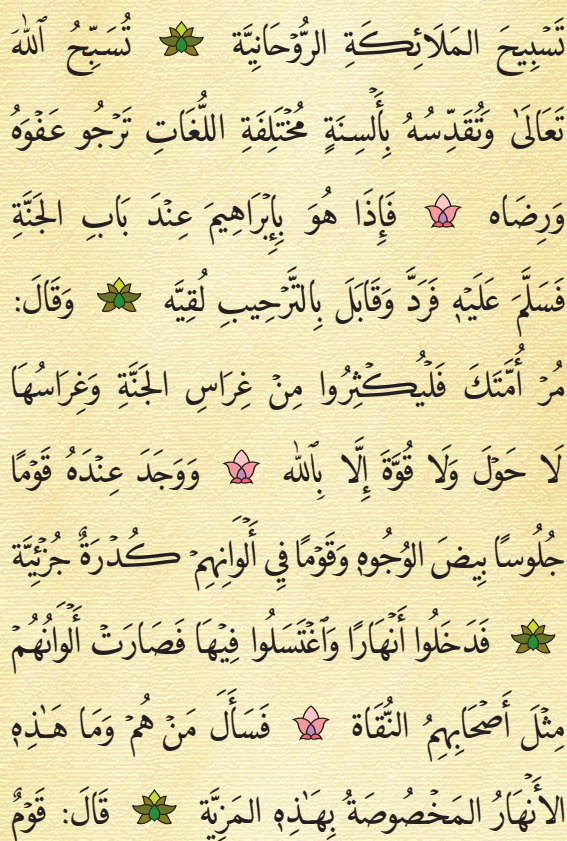 تَسْبِيحَ المَلَائِكَةِ الرُّوْحَانِيَّة تُسَبِّحُ ٱللّٰهَ
تَعَالَىٰ وَتُقَدِّسُهُ بِأَلْسِنَةٍ مُخْتَلِفَةِ اللُّغَاتِ تَرْجُو عَفْوَهُ
وَرِضَاه فَإِذَا هُوَ بِإِبْرَاهِيمَ عِنْدَ بَابِ الجَنَّةِ
فَسَلَّمَ عَلَيْهِ فَرَدَّ وَقَابَلَ بِالتَّرْحِيبِ لُقِيَّه وَقَالَ:
مُرْ أُمَّتَكَ فَلْيُكْثِرُوا مِنْ غِرَاسِ الجَنَّةِ وَغِرَاسُهَا
لَا حَوْلَ وَلَا قُوَّةَ إِلَّا بِٱللّٰه وَوَجَدَ عِنْدَهُ قَوْمًا
جُلُوسًا بِيضَ الوُجُوهِ وَقَوْمًا فِي أَلْوَانِهِمْ كُدْرَةٌ جُزْئِيَّة
فَدَخَلُوا أَنْهَارًا وَٱغْتَسَلُوا فِيْهَا فَصَارَتْ أَلْوَانُهُمْ
مِثْلَ أَصْحَابِهِمُ النُّقَاة فَسَأَلَ مَنْ هُمْ وَمَا هَـٰذِهِ
الأَنْهَارُ المَخْصُوصَةُ بِهَـٰذِهِ المَزِيَّة قَالَ: قَوْمٌ